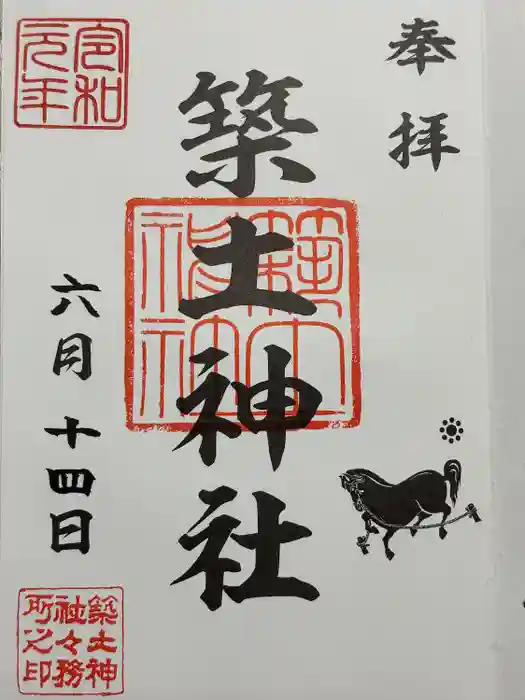 奉拝
築土神社
令和元年
六月十四日
築土神社々務所之印